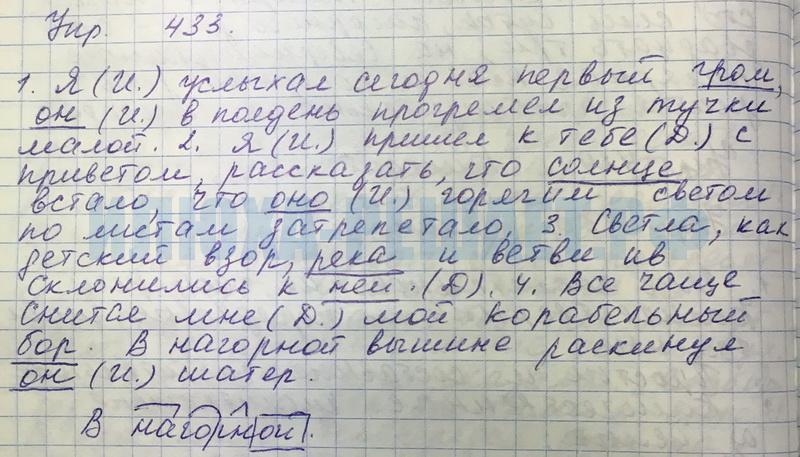 Упр. 433.
1. Я (И.) услыхал сегодня первый гром,
он (И.) в полдень прогремел из тучки
малой. 2. Я (И.) пришел к тебе (Д.) с
приветом, рассказать, что солнце
встало, что оно (И.) горячим светом
по листам затрепетало. 3. Светла, как
детский взор, река и ветви ив
склонились к ней. (Д). 4. Все чаще
снится мне (Д.) мой корабельный
бор. В нагорной вышине раскинул
он (И.) шатер.
В нагорной.